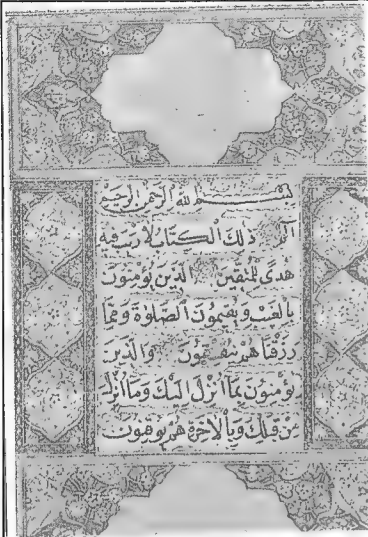 بِسْمِ اللهِ الرَّحْمٰنِ الرَّحِيْمِ
الٓمّ ذٰلِكَ الْكِتَابُ لَا رَيْبَ فِيهِ
هُدًى لِلْمُتَّقِينَ الَّذِينَ يُؤْمِنُونَ
بِالْغَيْبِ وَيُقِيمُونَ الصَّلٰوةَ وَمِمَّا
رَزَقْنَا هُمْ يُنْفِقُونَ وَالَّذِينَ
يُؤْمِنُونَ بِمَا اُنْزِلَ اِلَيْكَ وَمَا اُنْزِلَ
مِنْ قَبْلِكَ وَبِالْاٰخِرَةِ هُمْ يُوقِنُونَ